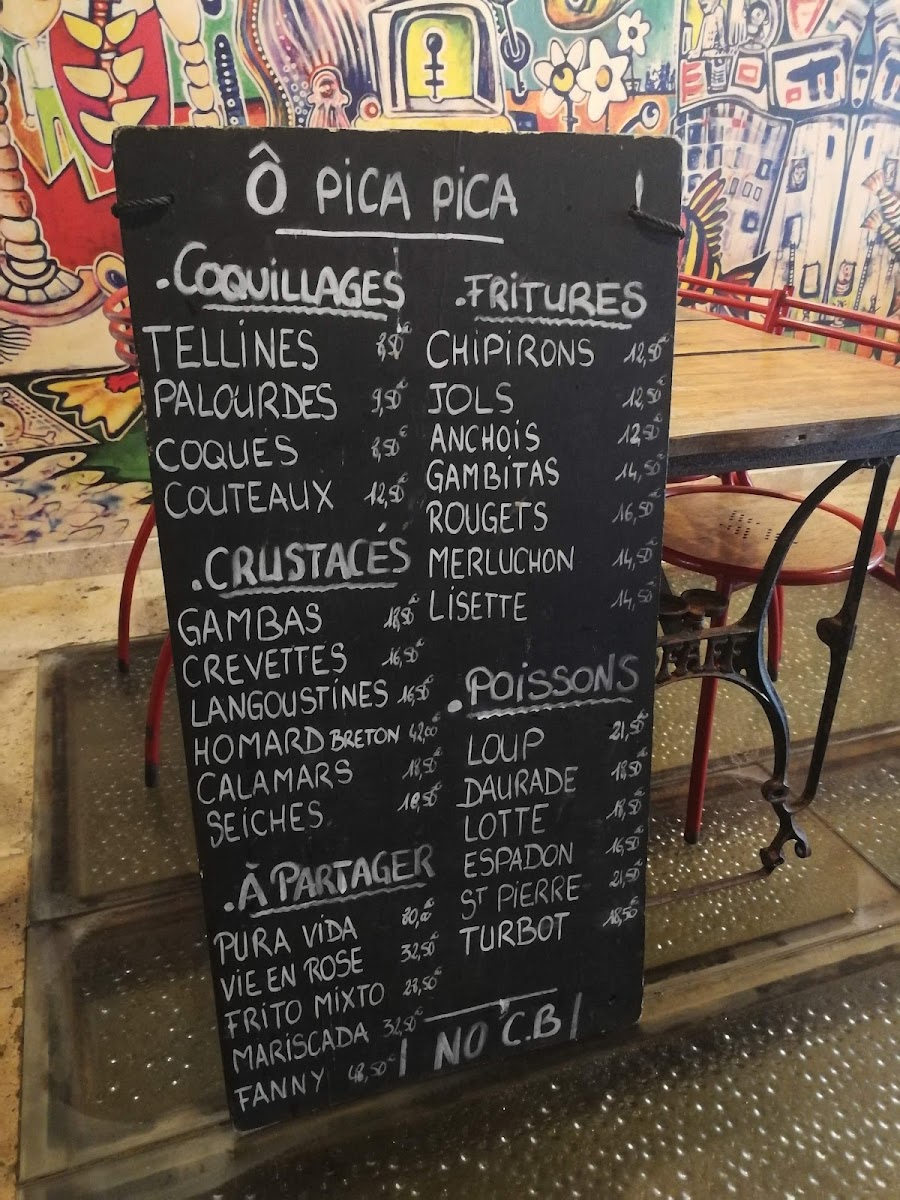 Ô PICA PICA
. COQUILLAGES
TELLINES
PALOURDES 9,50€
COQUES 8,50€
COUTEAUX 12,50€
. CRUSTACÉS
GAMBAS 18,50€
CREVETTES 16,50€
LANGOUSTINES 16,50€
HOMARD BRETON 42,00€
CALAMARS 18,50€
SEICHES 18,50€
. À PARTAGER
PURA VIDA
VIE EN ROSE 32,50€
FRITO MIXTO
MARISCADA 32,50€
FANNY 48,50€
. FRITURES
CHIPIRONS 12,50€
JOLS 12,50€
ANCHOIS 12,50€
GAMBITAS 14,50€
ROUGETS 16,50€
MERLUCHON 14,50€
LISETTE 14,50€
. POISSONS
LOUP 21,50€
DAURADE 18,50€
LOTTE 18,50€
ESPADON 16,50€
ST PIERRE 21,50€
TURBOT 18,50€
! NO C.B !